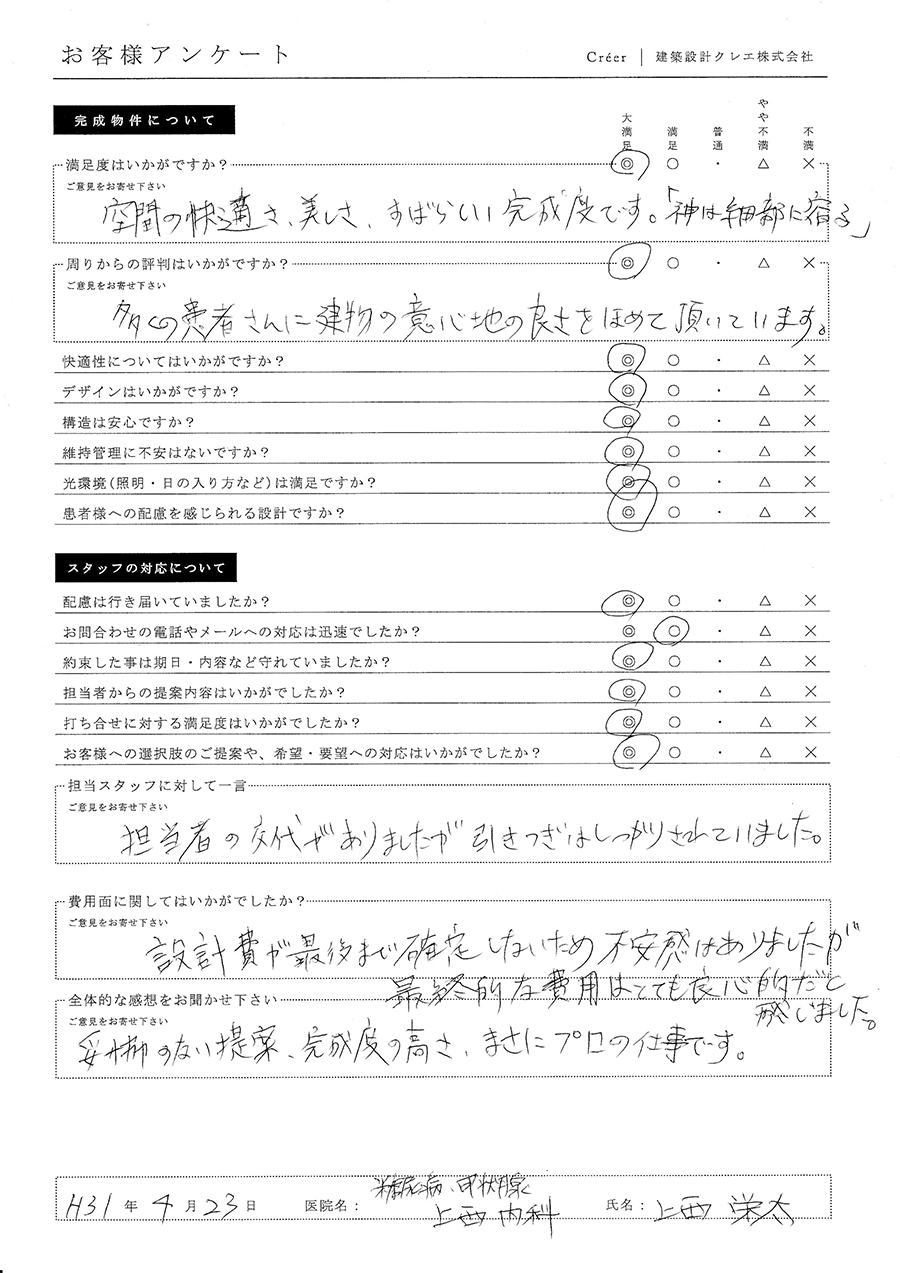 お客様アンケート
Créer | 建築設計クレエ株式会社
完成物件について
大満足 満足 普通 やや不満 不満
満足度はいかがですか? ◎ ○ ・ △ ×
ご意見をお寄せ下さい
空間の快適さ、美しさ、すばらしい完成度です。「神は細部に宿る」
周りからの評判はいかがですか? ◎ ○ ・ △ ×
ご意見をお寄せ下さい
多くの患者さんに建物の意心地の良さをほめて頂いています。
快適性についてはいかがですか? ◎ ○ ・ △ ×
デザインはいかがですか? ◎ ○ ・ △ ×
構造は安心ですか? ◎ ○ ・ △ ×
維持管理に不安はないですか? ◎ ○ ・ △ ×
光環境(照明・日の入り方など)は満足ですか? ◎ ○ ・ △ ×
患者様への配慮を感じられる設計ですか? ◎ ○ ・ △ ×
スタッフの対応について
配慮は行き届いていましたか? ◎ ○ ・ △ ×
お問合わせの電話やメールへの対応は迅速でしたか? ◎ ○ ・ △ ×
約束した事は期日・内容など守れていましたか? ◎ ○ ・ △ ×
担当者からの提案内容はいかがでしたか? ◎ ○ ・ △ ×
打ち合せに対する満足度はいかがでしたか? ◎ ○ ・ △ ×
お客様への選択肢のご提案や、希望・要望への対応はいかがでしたか? ◎ ○ ・ △ ×
担当スタッフに対して一言
ご意見をお寄せ下さい
担当者の交代がありましたが引きつぎはしっかりされていました。
費用面に関してはいかがでしたか?
ご意見をお寄せ下さい
設計費が最後まで確定しないため不安感はありましたが
最終的な費用はとても良心的だと
感じました。
全体的な感想をお聞かせ下さい
ご意見をお寄せ下さい
妥協のない提案、完成度の高さ、まさにプロの仕事です。
糖尿病、甲状腺
H31年 4月 23日 医院名: 上西内科 氏名: 上西 栄太